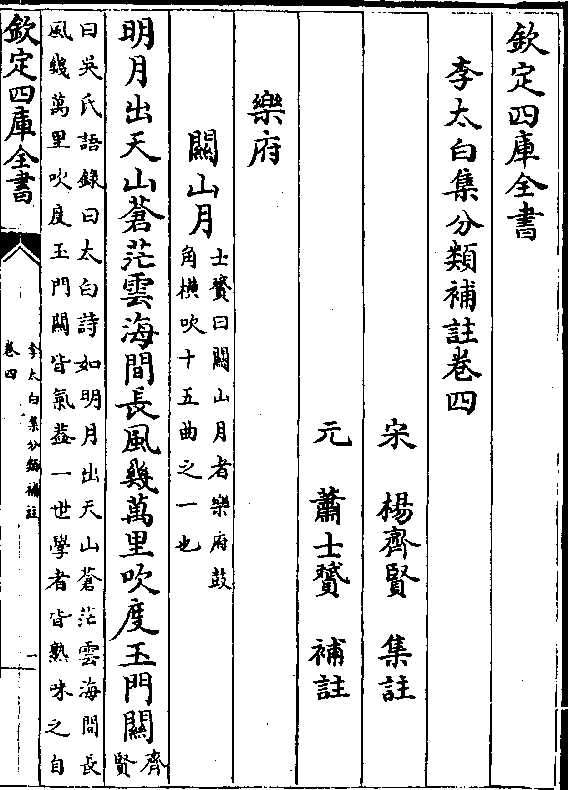 欽定四庫全書
李太白集分類補註卷四
宋 楊齊賢 集註
元 蕭士贇 補註
樂府
關山月
士贇曰關山月者樂府鼓
角橫吹十五曲之一也
明月出天山蒼茫雲海間長風幾萬里吹度玉門關
齊
賢
曰吳氏語錄曰太白詩如明月出天山蒼茫雲海間長
風幾萬里吹度玉門關皆氣葢一世學者皆熟味之自
欽定四庫全書
李太白集分類補註
卷四
一